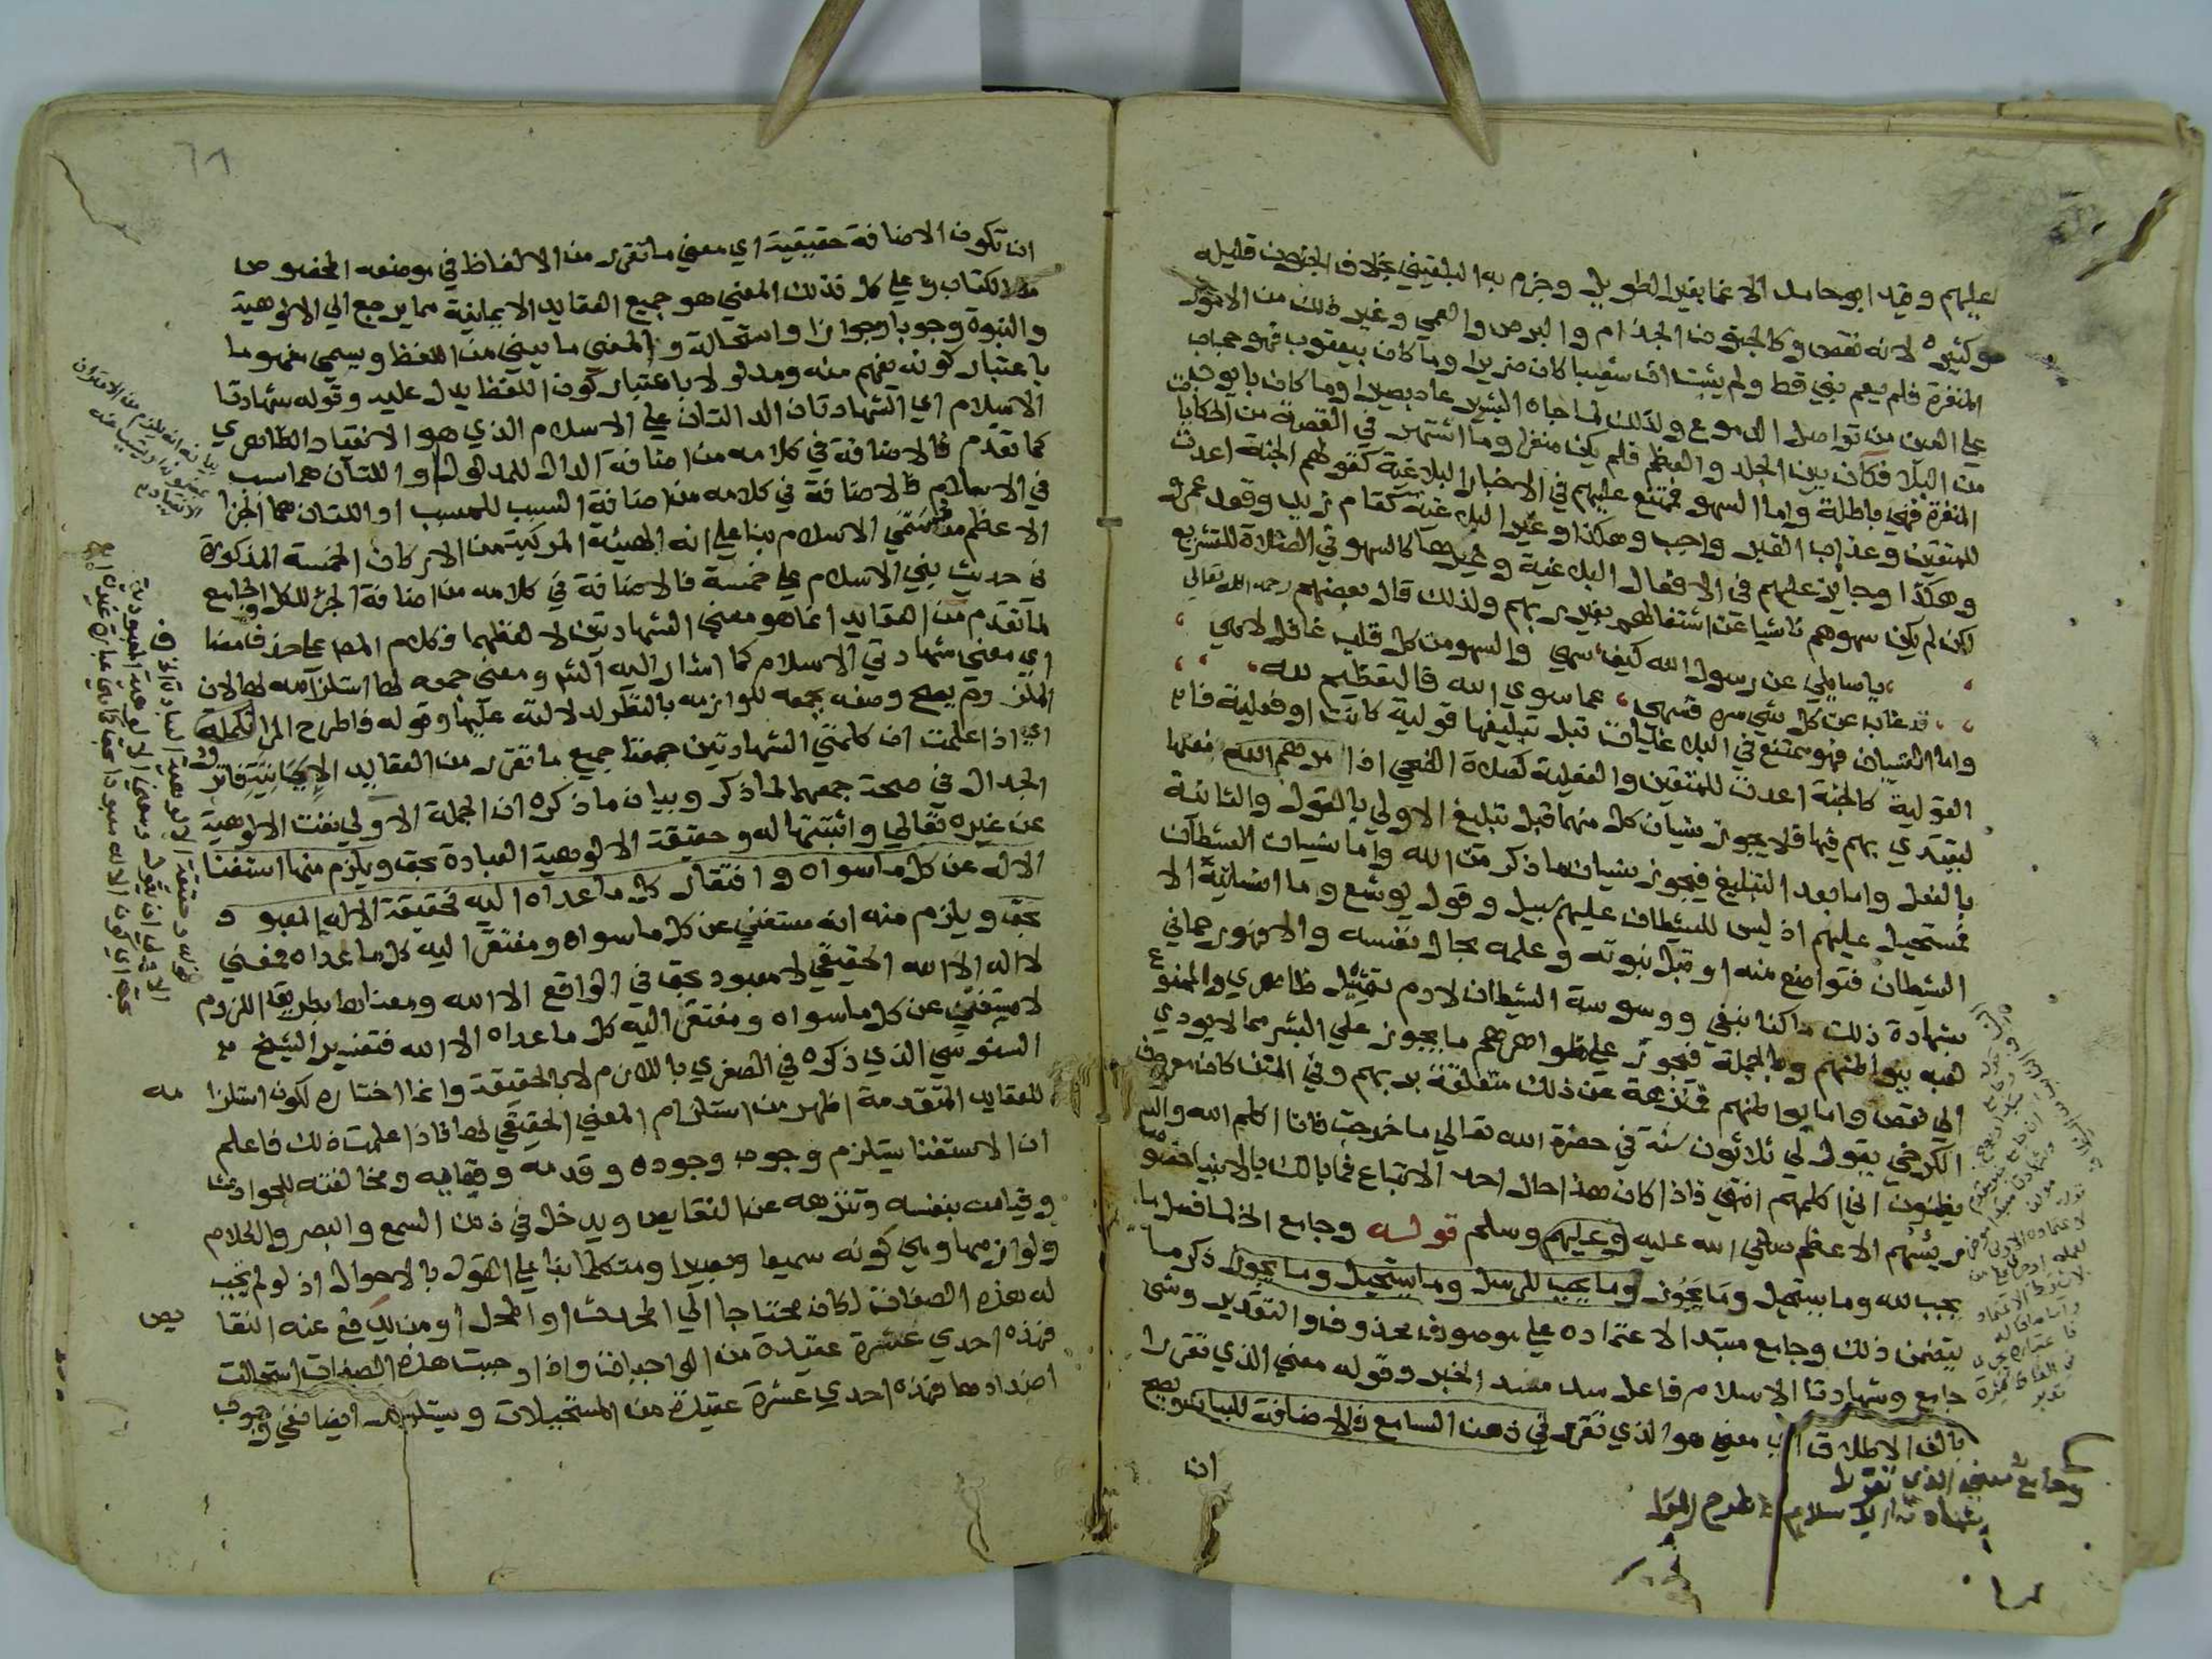 عليهم وقيد ابوحامد الاغما بغير الطويل وجزم به البلقيني بخلاف الجنون قليله
وكثيره لانه نقص وكالجنون الجذام والبرص والعمي وغير ذلك من الامور
المنفرة فلم يعم نبي قط ولم يثبت ان شعيبا كان ضريرا وما كان بيعقوب فهو حجاب
علي العين من تواصل الدموع ولذلك لما جاه البشير عاد بصيرا وما كان بايوب
من البلا فكان بين الجلد والعظم فلم يكن منفرا وما اشتهر في القصة من الحكايات
المنفرة فهي باطلة واما السهو فممتنع عليهم في الاخبار البلاغية كقولهم الجنة اعدت
للمتقين وعذاب القبر واجب وهكذا وغير البلاغية كقام زيد وقعد عمرو
وهكذا وجايز عليهم في الافعال البلاغية وغيرها كالسهو في الصلاة للتشريع
لكن لم يكن سهوهم ناشيا عن اشتغالهم بغير ربهم ولذلك قال بعضهم رحمه الله تعالي
ياسايلي عن رسول الله كيف سهي والسهو من كل قلب غافل لاهي
قد غاب عن كل شي سره فسهي عما سوي الله فالتعظيم لله
واما النسيان فهو ممتنع في البلاغيات قبل تبليغها قولية كانت او فعلية فا
القولية كالجنة اعدت للمتقين والفعلية كصلاة الضحي اذا امرهم الله بفعلها
ليقتدي بهم فيها فلا يجوز نسيان كل منهما قبل تبليغ الاولي بالقول والثانية
بالفعل واما بعد التبليغ فيجوز نسيان ما ذكر من الله واما نسيان الشيطان
فمستحيل عليهم اذ ليس للشيطان عليهم سبيل وقول يوشع وما انسانيه الا
الشيطان فتواضع منه او قبل نبوته وعلمه بحال نفسه والا فهو رحماني
بشهادة ذلك ما كنا نبغي ووسوسة الشيطان لادم بتمثيل ظاهري والممنوع
لعبه ببواطنهم وبالجملة فيجوز علي ظواهرهم ما يجوز علي البشر مما لا يودي
الي نقص واما بواطنهم فمنزهة عن ذلك متعلقة بربهم وفي المتن كان معروف
الكرخي يقول لي ثلاثون سنة في حضرة الله تعالي ما خرجت فانا اكلم الله والناس
يظنون اني اكلمهم انتهي فاذا كان هذا حال احد الاتباع فما بالك بالانبيا خصوصا
رييسهم الاعظم صلي الله عليه وعليهم وسلم قوله وجامع الخ لما فصل ما
يجب لله وما يستحيل وما يجوز وما يجب للرسل وما يستحيل وما يجوز ذكر ما
يتضمن ذلك وجامع مبتدا لاعتماده علي موصوف محذوف والتقدير وشي
جامع وشهادتا الاسلام فاعل سد مسد الخبر وقوله معني الذي تقررا
بالف الاطلاق اي معني هو الذي تقرر في ذهن السامع فالاضافة للبيان ويصح
ان
وجامع معني الذي تقررا
شهادتا الاسلام فاطرح المرا
ان تكون الاضافة حقيقية اي معني ما تقرر من الالفاظ في موضعه المخصوص
من الكتاب وعلي كل فذلك المعني هو جميع العقايد الايمانية مما يرجع الي الالوهية
والنبوة وجوبا وجوازا واستحالة والمعني ما يعني من اللفظ ويسمي مفهوما
باعتبار كونه يفهم منه ومدلولا باعتبار كون اللفظ يدل عليه وقوله شهادتا
الاسلام اي الشهادتان الدالتان علي الاسلام الذي هو الانقياد الظاهري
كما تقدم فالاضافة في كلامه من اضافة الدال للمدلول او اللتان هما سبب
في الاسلام فالاضافة في كلامه من اضافة السبب للمسبب او اللتان هما الجزا
الاعظم من مسمي الاسلام بنا علي انه الهيئة المركبة من الاركان الخمسة المذكورة
في حديث بني الاسلام علي خمسة فالاضافة في كلامه من اضافة الجزء للكل والجامع
لما تقدم من العقايد انما هو معني الشهادتين لا لفظهما فكلام المص علي حذف مضاف
اي معني شهادتي الاسلام كما اشار اليه الش ومعني جمعه لها استلزامه لها لان
الملزوم يصح وصفه بجمعه للوازمه بالنظر لدلالته عليها وقوله فاطرح المرا تكملة
اي اذا علمت ان كلمتي الشهادتين جمعتا جميع ما تقرر من العقايد الايمانية فاترك
الجدال في صحة جمعهما لما ذكر وبيان ما ذكره ان الجملة الاولي نفت الالوهية
عن غيره تعالي واثبتتها له وحقيقة الالوهية العبادة بحق ويلزم منها استغنا
الاله عن كل ما سواه وافتقار كل ما عداه اليه فحقيقة الاله المعبود
بحق ويلزم منه انه مستغني عن كل ما سواه ومفتقر اليه كل ما عداه فمعني
لا اله الا الله الحقيقي لا معبود بحق في الواقع الا الله ومعناها بطريق اللزوم
لا مستغني عن كل ما سواه ومفتقر اليه كل ما عداه الا الله فتفسير الشيخ
السنوسي الذي ذكره في الصغري باللازم لا بالحقيقة وانما اختاره لكون استلزامه
للعقايد المتقدمة اظهر من استلزام المعني الحقيقي لها فاذا علمت ذلك فاعلم
ان الاستغنا يستلزم وجوب وجوده وقدمه وبقايه ومخالفته للحوادث
وقيامه بنفسه وتنزهه عن النقايص ويدخل في ذلك السمع والبصر والكلام
ولوازمها وهي كونه سميعا وبصيرا ومتكلما بنا علي القول بالاحوال اذ لو لم يجب
له هذه الصفات لكان محتاجا الي المحدث او المحل او من يدفع عنه النقايص
فهذه احدي عشرة عقيدة من الواجبات واذا وجبت هذه الصفات استحالت
اضدادها فهذه احدي عشرة عقيدة من المستحيلات ويستلزم ايضا نفي وجوب